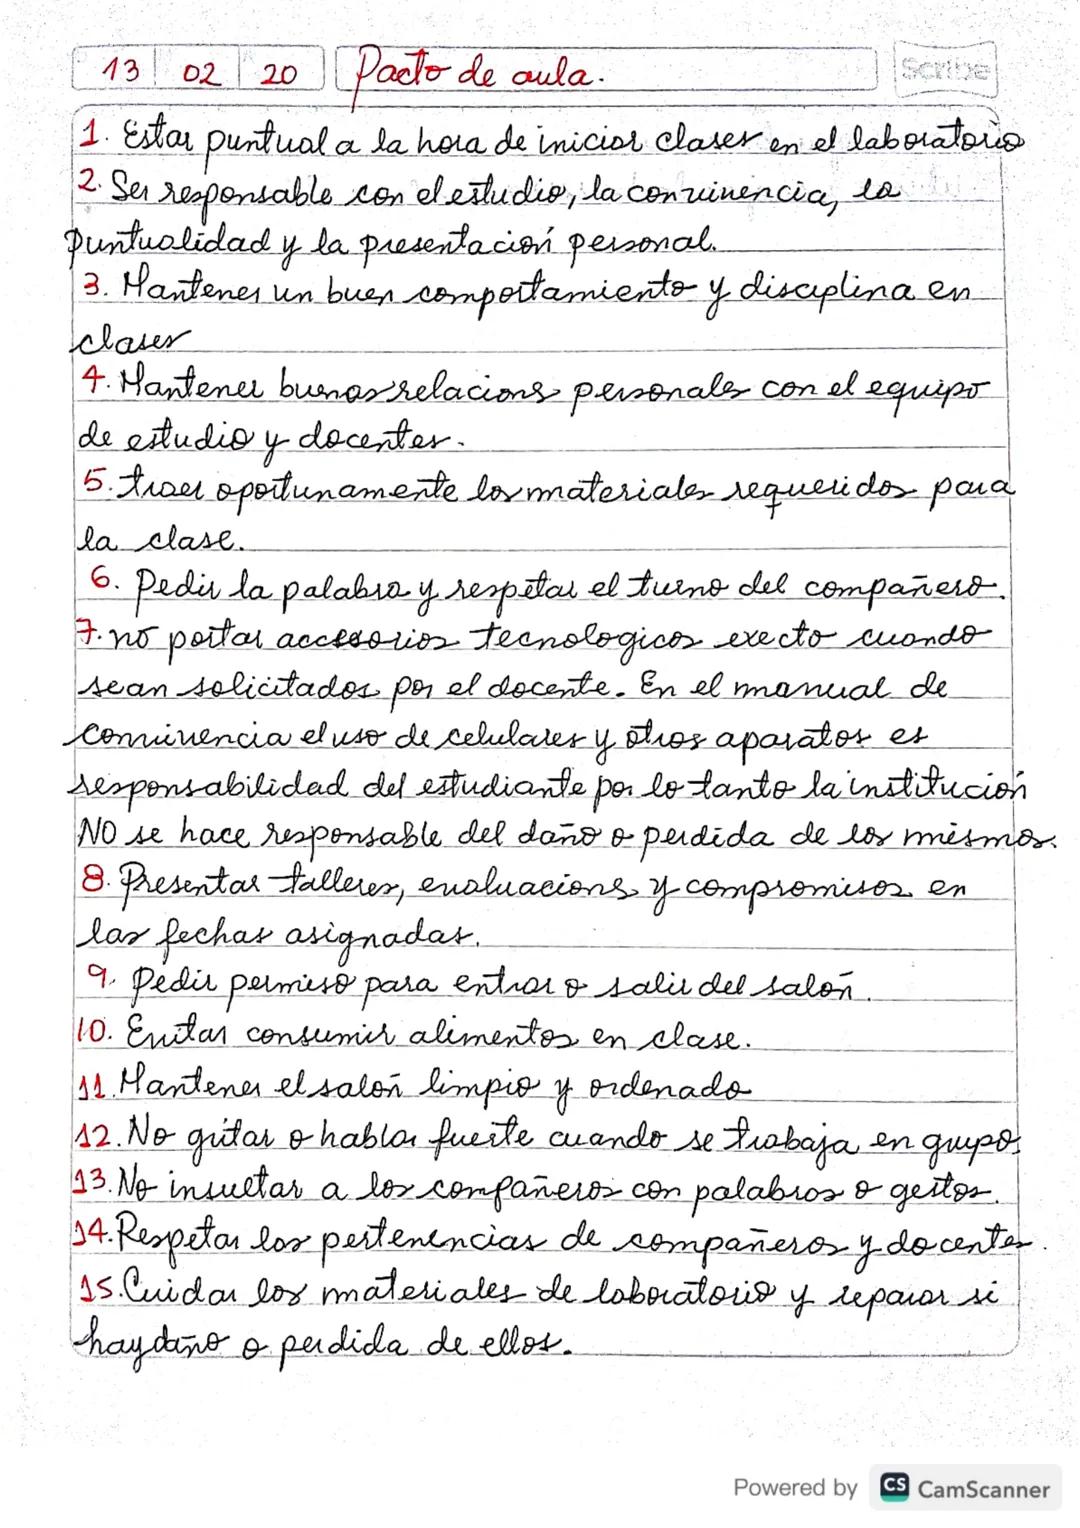 13 02 20 Pacto de aula.
Scribe
1. Estar puntual a la hora de iniciar clases en el laboratorio
2. Ser responsable con el estudio, la convivencia, la
puntualidad y la presentación personal.
3. Mantener un buen comportamiento y disciplina en
clases
4. Mantener buenas relacions personales con el equipo
de estudio y docentes.
5. traer oportunamente los materiales requeridos para
la clase.
6. Pedir la palabra y respetar el turno del compañero.
7. no portar accesorios tecnologicos execto cuando
sean solicitados por el docente. En el manual de
convivencia el uso de celulares y otros aparatos es
responsabilidad del estudiante por lo tanto la institución
NO se hace responsable del daño o perdida de los mismos.
8. Presentar talleres, evaluacions y compromisos en
las fechas asignadas.
9. Pedir permiso para entrar o salir del salón.
10. Evitar consumir alimentos en clase.
11. Mantener el salón limpio y ordenado
12. No gritar o hablar fuerte cuando se trabaja en grupo.
13. No insultar a los compañeros con palabras o gestos.
14. Respetar las pertenencias de compañeros y docentes.
15. Cuidar los materiales de laboratorio y reparar si
hay daño o perdida de ellos.
Powered by CS CamScanner